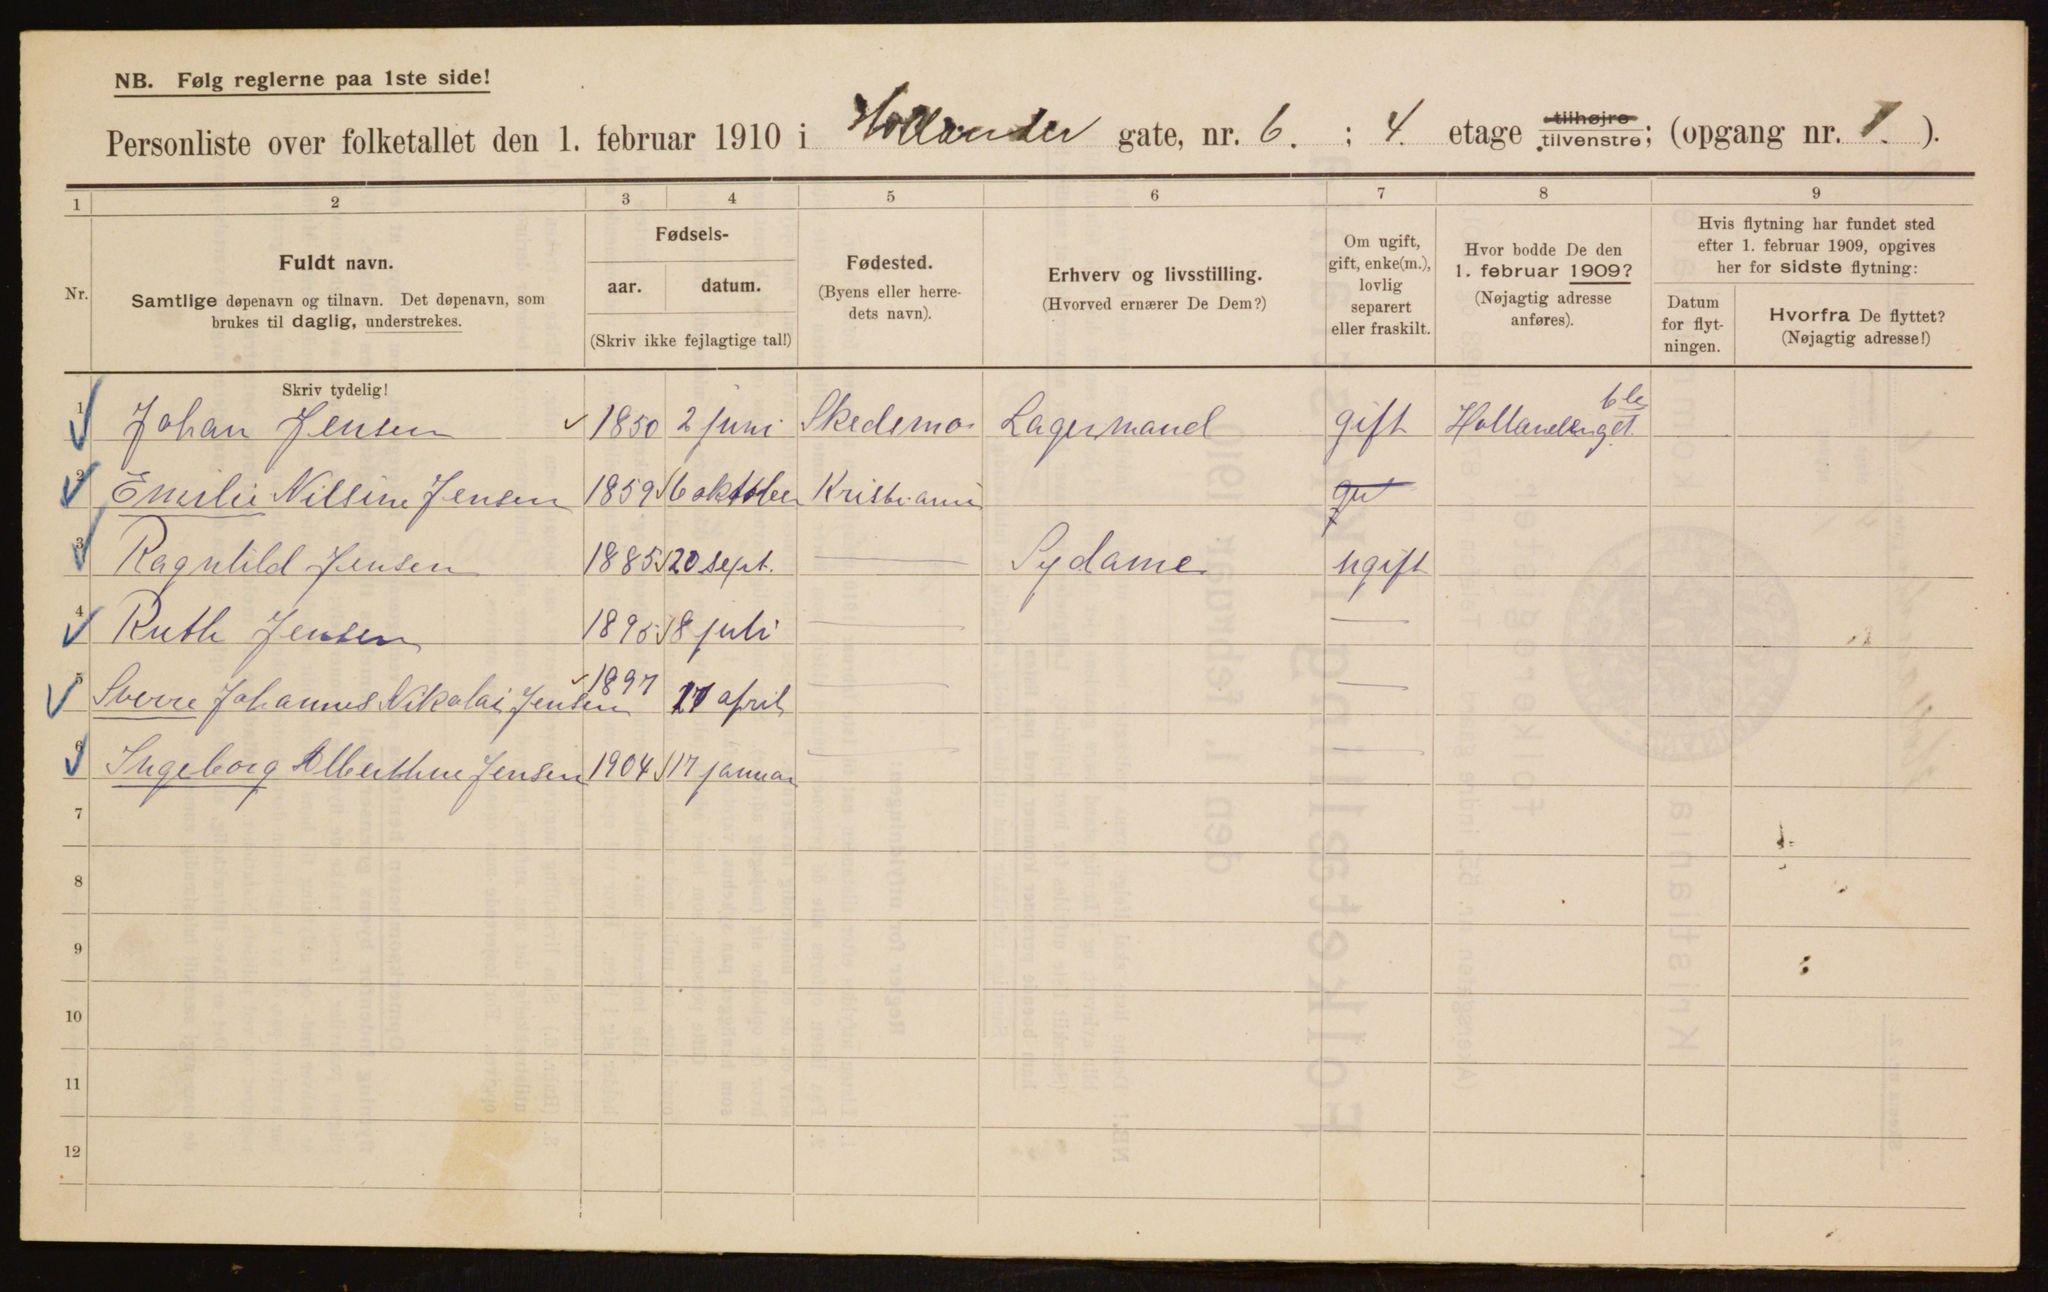 NB. Følg reglerne paa 1ste side!
Personliste over folketallet den 1. februar 1910 i Hollander gate, nr. 6. ; 4. etage tilhøjre tilvenstre; (opgang nr. 1. ).
1 2 3 4 5 6 7 8 9
Nr.
Fuldt navn.
Samtlige døpenavn og tilnavn. Det døpenavn, som
brukes til daglig, understrekes.
Fødsels-
aar. datum.
(Skriv ikke fejlagtige tal!)
Fødested.
(Byens eller herre-
dets navn).
Erhverv og livsstilling.
(Hvorved ernærer De Dem?)
Om ugift,
gift, enke(m.),
lovlig
separert
eller fraskilt.
Hvor bodde De den
1. februar 1909?
(Nøjagtig adresse
anføres).
Hvis flytning har fundet sted
efter 1. februar 1909, opgives
her for sidste flytning:
Datum
for flyt-
ningen.
Hvorfra De flyttet?
(Nøjagtig adresse!)
Skriv tydelig!
1 Johan Jensen 1850 2 juni Skedsmo Lagermand gift Hollendergt.
2 Emilie Nilsine Jensen 1859 6 oktober Kristiania
3 Ragnhild Jensen 1885 20 sept. — Sydame ugift
4 Ruth Jensen 1895 8 juli — —
5 Sverre Johannes Nikolai Jensen 1897 17 april — —
6 Ingeborg Alberthine Jensen 1904 17 januar — —
7
8
9
10
11
12